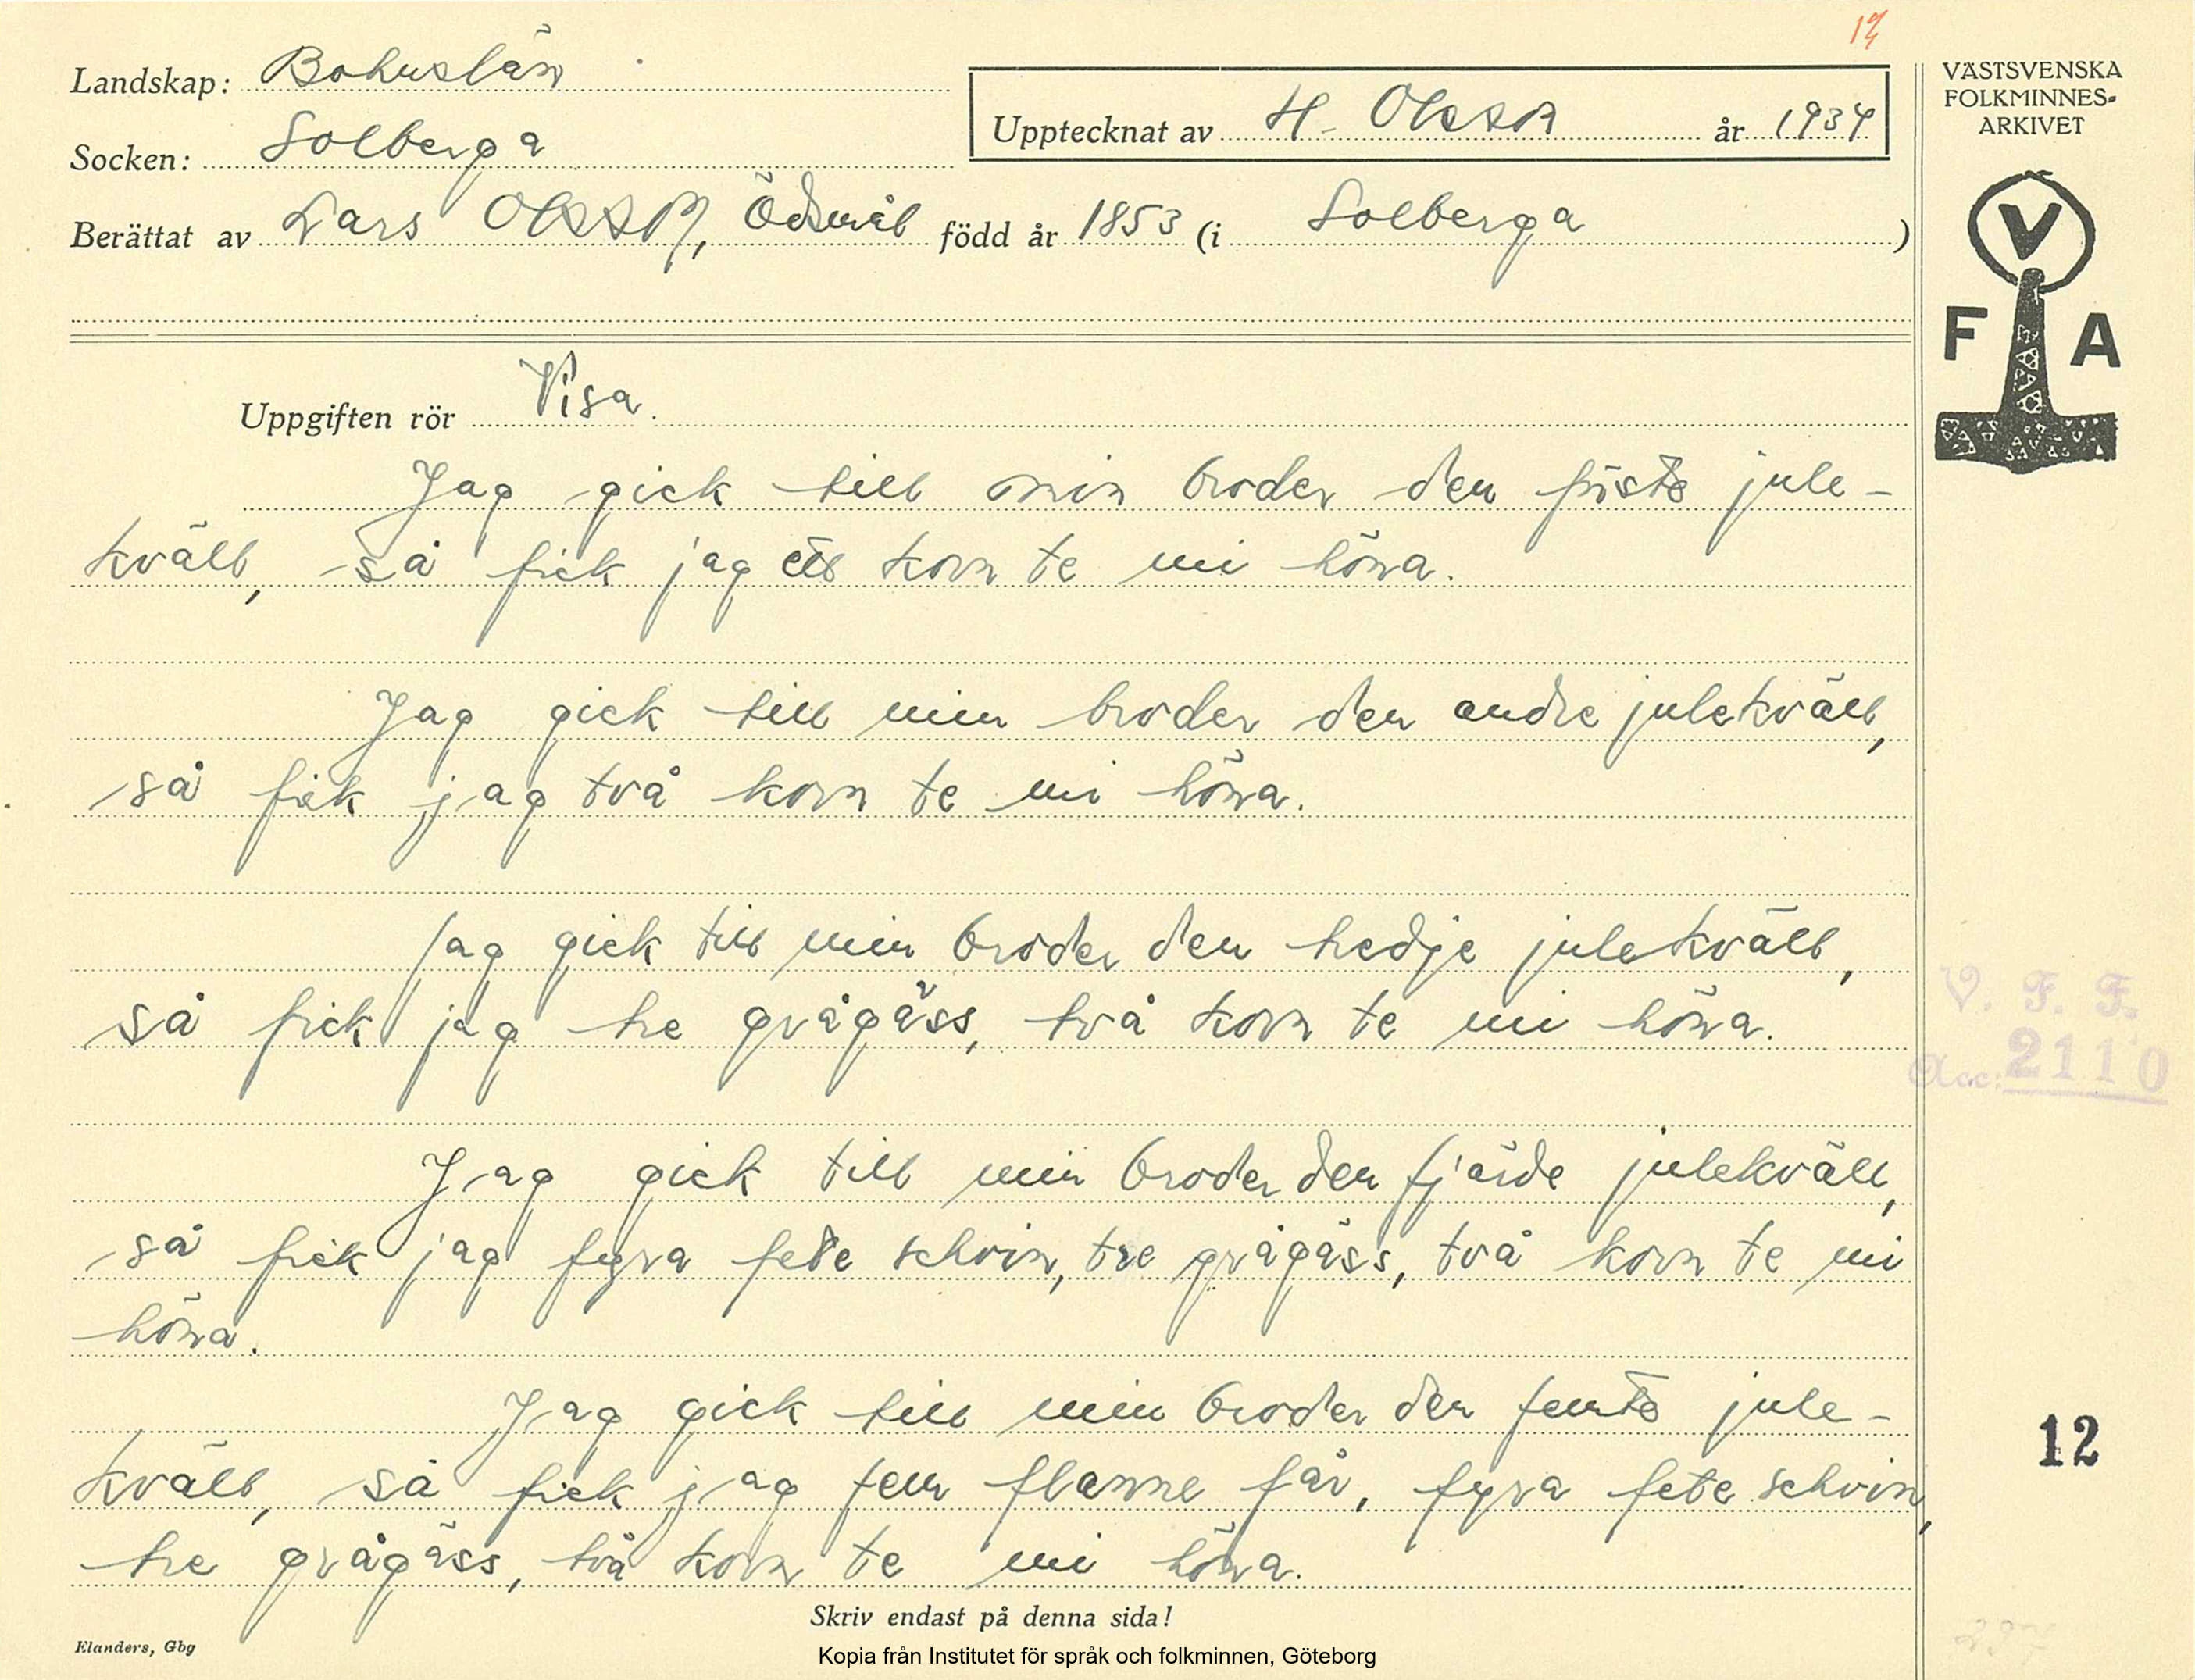 12
Landskap: Bohuslän
VÄSTSVENSKA
FOLKMINNES-
ARKIVET
Upptecknat av H. Olsson år 1934
Socken: Solberga
Berättat av Lars Olsson, Ödsmål född år 1853 (i Solberga)
V
F A
Uppgiften rör Visa.
Jag gick till min broder den förste jule-
kväll, så fick jag ett korn te mi höna.
Jag gick till min broder den andre julekväll,
så fick jag två korn te mi höna.
Jag gick till min broder den tredje julekväll,
så fick jag tre grågäss, två korn te mi höna.
V. F. F.
Acc: 2110
Jag gick till min broder den fjärde julekväll,
så fick jag fyra fete schvin, tre grågäss, två korn te mi
höna.
Jag gick till min broder den femte jule-
kväll, så fick jag fem flamme får, fyra fete schvin,
tre grågäss, två korn te mi höna.
12
Skriv endast på denna sida!
Elanders, Gbg
Kopia från Institutet för språk och folkminnen, Göteborg